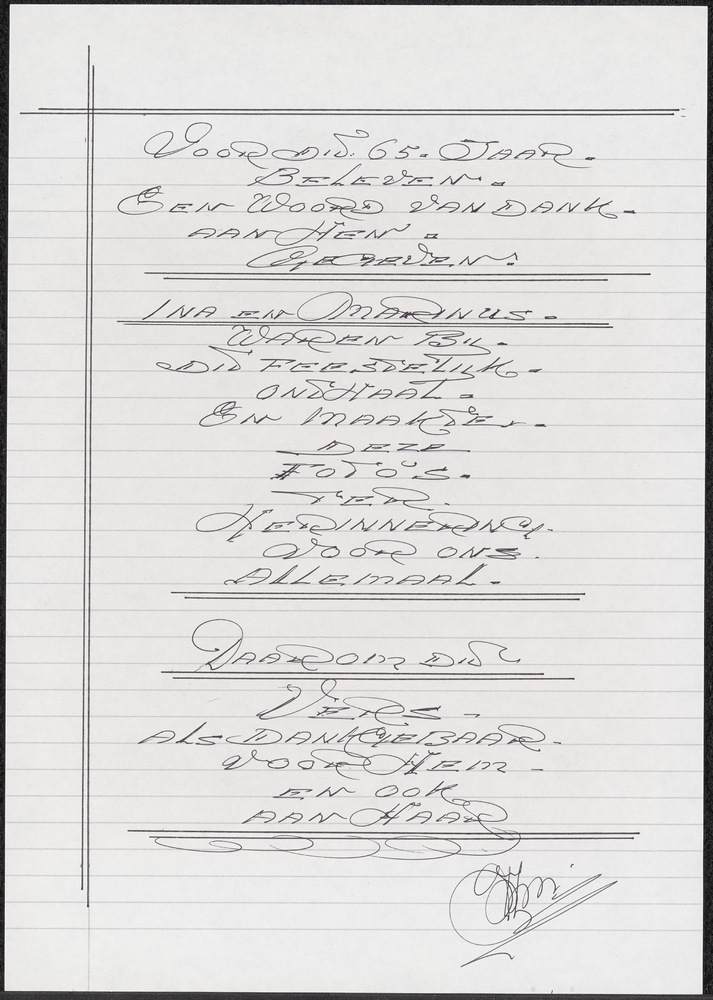 VOOR DIT. 65. JAAR.
BELEVEN.
EEN WOORD VAN DANK.
AAN HEN.
GEGEVEN.
INA EN MARINUS.
WAREN BIJ.
DIT FEESTELIJK.
ONTHAAL.
EN MAAKTE.
DEZE
FOTO'S.
TER.
HERINNERING.
VOOR ONS.
ALLEMAAL.
DAAROM DIT
VERS.
ALS DANKGEBAAR.
VOOR HEM.
EN OOK
AAN HAAR